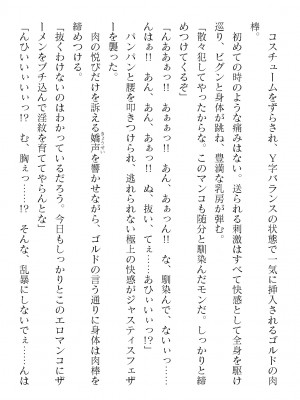 コスチュームをずらされ、Ｙ字バランスの状態で一気に挿入されるゴルドの肉
棒。
初めての時のような痛みはない。送られる刺激はすべて快感として全身を駆け
巡り、ビグンと身体が跳ね、豊満な乳房が弾む。
「散々犯してやったからな。このマンコも随分と馴染んだモンだ。しっかりと締
めつけてくるぞ」
「あんっぁ!!　あん、あん、あんっぁ!!　な、馴染んで、なんて……な、
んはぁ!!　あん、あん、あぁ!!　ぬ、抜い、てぇ……あひぃいぃっ!?」
パンパンと腰を叩きつけられ、逃れられない極上の快感がジャスティスフェザ
ーを襲った。
肉の悦びだけを訴える嬌声を響かせながら、ゴルドの言う通りに身体は肉棒を
締めつける。
「抜くわけないのはわかっているだろう。今日もしっかりとこのエロマンコにザ
ーメンをブチ込んで淫紋を育ててやらんとな」
「んひいいぃいぃっ!?　む、胸ぇっ…!?　そんな、乱暴にしないでぇ……んは